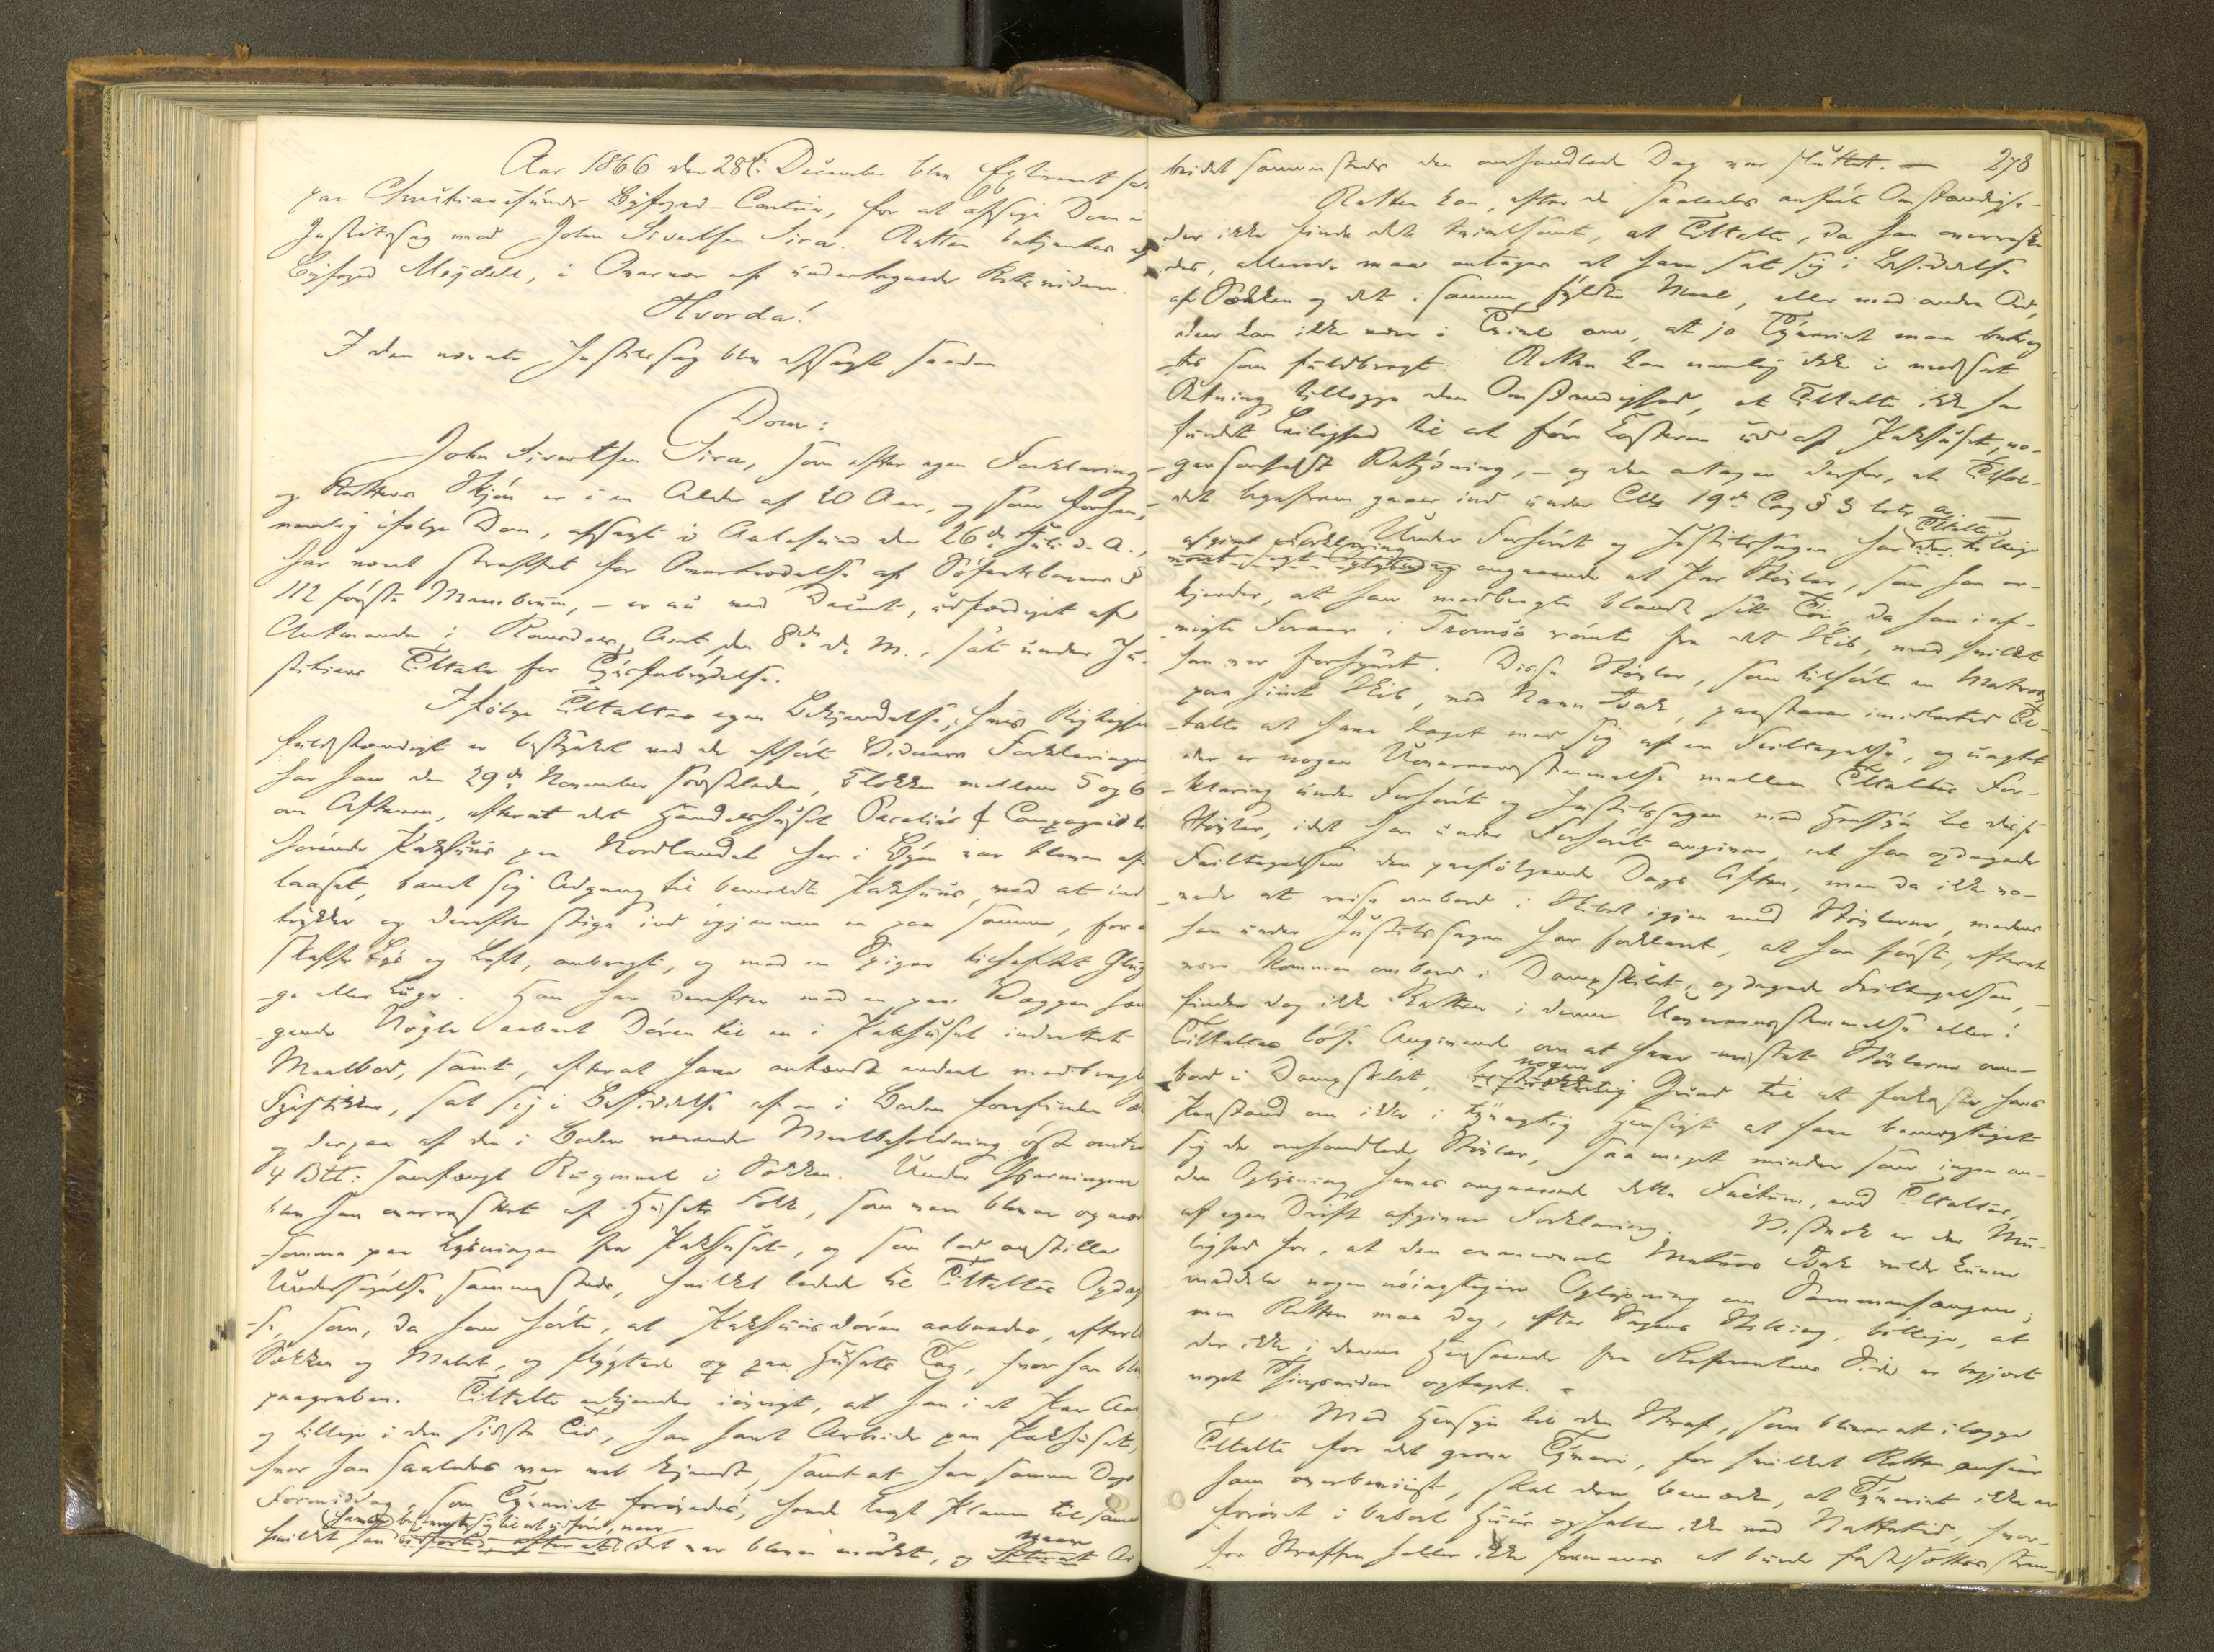 Aar 1866 den 28de December blev Extraret sat
paa Christianssunds Byfoged-Contoir, for at afsige Dom i
Justitssag mod John Sivertsen Sira. Retten betjentes af
Byfoged Meydell, i Overvær af undertegnede Retsvidner.
Hvorda!
I den nævnte Justitssag blev afsagt saadan
Dom:
John Sivertsen Sira, som efter egen Forklaring
og Rettens Skjøn er i en Alder af 20 Aar, og som forhen,
nemlig ifølge Dom, afsagt i Aalesund den 26de Juli d. A.,
har været straffet for Overtrædelse af Søfartslovens §
112 første Membrum, – er nu ved Decret, udfærdiget af
Amtmanden i Romsdals Amt den 8de d. M., sat under Ju-
stitiens Tiltale for Tyvsforbrydelse.
Ifølge Tiltaltes egen Bekjendelse, hvis Rigtighed
fuldstændigt er bestyrket ved de afhørte Vidners Forklaringer
har han den 29de November sidstleden, Klokken mellem 5 og 6
om Aftenen, efterat det Handelshuset Parelius & Compagnie til-
hørende Pakhuus paa Nordlandet her i Byen var bleven af-
laaset, banet sig Adgang til bemeldte Pakhuus, ved at ind
trykke og derefter stige ind igjennem en paa samme, for a
skaffe Lys og Luft, anbragt, og med en Spiger tilhæftet Glug
-ge eller Luge. Han har derefter med en paa Væggen hæn
-gende Nøgle aabnet Døren til en i Pakhuset indrettet
Meelbod, samt, efterat have antændt endeel medbragte
Fyrstikker, sat sig i Besiddelse af en i Boden forefunden Sæk
og derpaa af den i Boden værende Meelbeholdning øst omtre
4 Btt: Rugmeel i Sækken. Under Gjerningen
blev han overrasket af Husets Folk, som vare blevne opmærk
-somme paa Lysningen fra Pakhuset, og som lod anstille
Undersøgelse sammesteds, hvilket ledede til Tiltaltes Opdag
-se, som, da han hørte, at Pakhuusdøren aabnedes, efterlod
Sækken og Melet, og flygtede op paa Husets Tag, hvor han blev
paagreben. Tiltalte erkjender iøvrigt, at han i et Par Aar
og tillige i den sidste Tid, har havt Arbeide paa Pakhuset,
hvor han saaledes var vel kjendt, samt at han samme Dags
Formiddag, som Tyveriet forøvedes, havde lagt Planen til samme
hvilket han det var blevet mørkt, og naar Ar
beidet sammesteds den omhandlede Dag var sluttet. –
278
Retten kan, efter de saaledes anførte Omstændighe-
der ikke finde det tvivlsomt, at Tiltalte, da han overraske
des, allerede maa antages at have sat sig i Besiddelse
af Sækken og det i samme fyldte Meel, eller med andre Ord,
der kan ikke være i Tvivl om, at jo Tyveriet maa betrag
-tes som fuldbragt. Retten kan nemlig ikke i modsat
Retning tillægge den Omstændighed, at Tiltalte ikke har
fundet Leilighed til at føre Kosterne ud af Pakhuset, no-
gensomhelst Betydning, – og den antager derfor, at Tilfæl-
det ligefrem gaaer ind under Cll 19de Cap § 3 litr a. –
Under Forhøret og Justitssagen har Tiltalte tillige
afgivet Forklaring angaaende et Par Støvler, som han er-
kjender, at have medbragte blandt sit Tøi, da han i af-
vigte Foraar i Tromsø rømte fra det Skib, med hvilket
han var forhyret. Disse Støvler, som tilhørte en Matros
paa sidste Skib, ved Navn Bak, paastaaer imidlertid Til-
-talte at have taget med sig af en Feiltagelse, og uagtet
der er nogen Uoverensstemmelse mellem Tiltaltes For-
-klaring under Forhøret og Justitssagen med Hensyn til disse
Støvler, idet han under Forhøret angiver, at han opdagede
Feiltagelsen den paafølgende Dags Aften, men da ikke vo-
-vede at reise ombord i Skibet igjen med Støvlerne, medens
han under Justitssagen har forklaret, at han først, efterat
være kommen ombord i Dampskibet, opdagede Feiltagelsen, –
finder dog ikke Retten i denne Uoverensstemmelse eller i
Tiltaltes løse Angivende om at have mistet Støvlerne om-
bord i Dampskibet, nogen Grund til at forkaste hans
Paastand om ikke i tyvagtig Hensigt at have bemægtiget
sig de omhandlede Støvler, saa meget mindre som ingen an-
den Oplysning haves angaaende dette Factum, end Tiltaltes,
af egen Drift afgivne Forklaring. Vistnok er der Mu-
lighed for, at den ommeldte Matros Bak vilde kunne
meddele nogen nøiagtigere Oplysning om Sammenhængen;
men Retten maa dog, efter Sagens Stilling, billige, at
der ikke i denne Henseende fra Referentens Side er begjært
noget Thingsvidne optaget. –
Med Hensyn til den Straf, som bliver at ilægge
Tiltalte for det grove Tyveri, for hvilket Retten anseer
ham overbeviist, skal den bemærke, at Tyveriet ikke er
forøvet i beboet Huus og heller ikke ved Nattetid, hvor-
for Straffen heller ikke formenes at burde fastsættes stren-